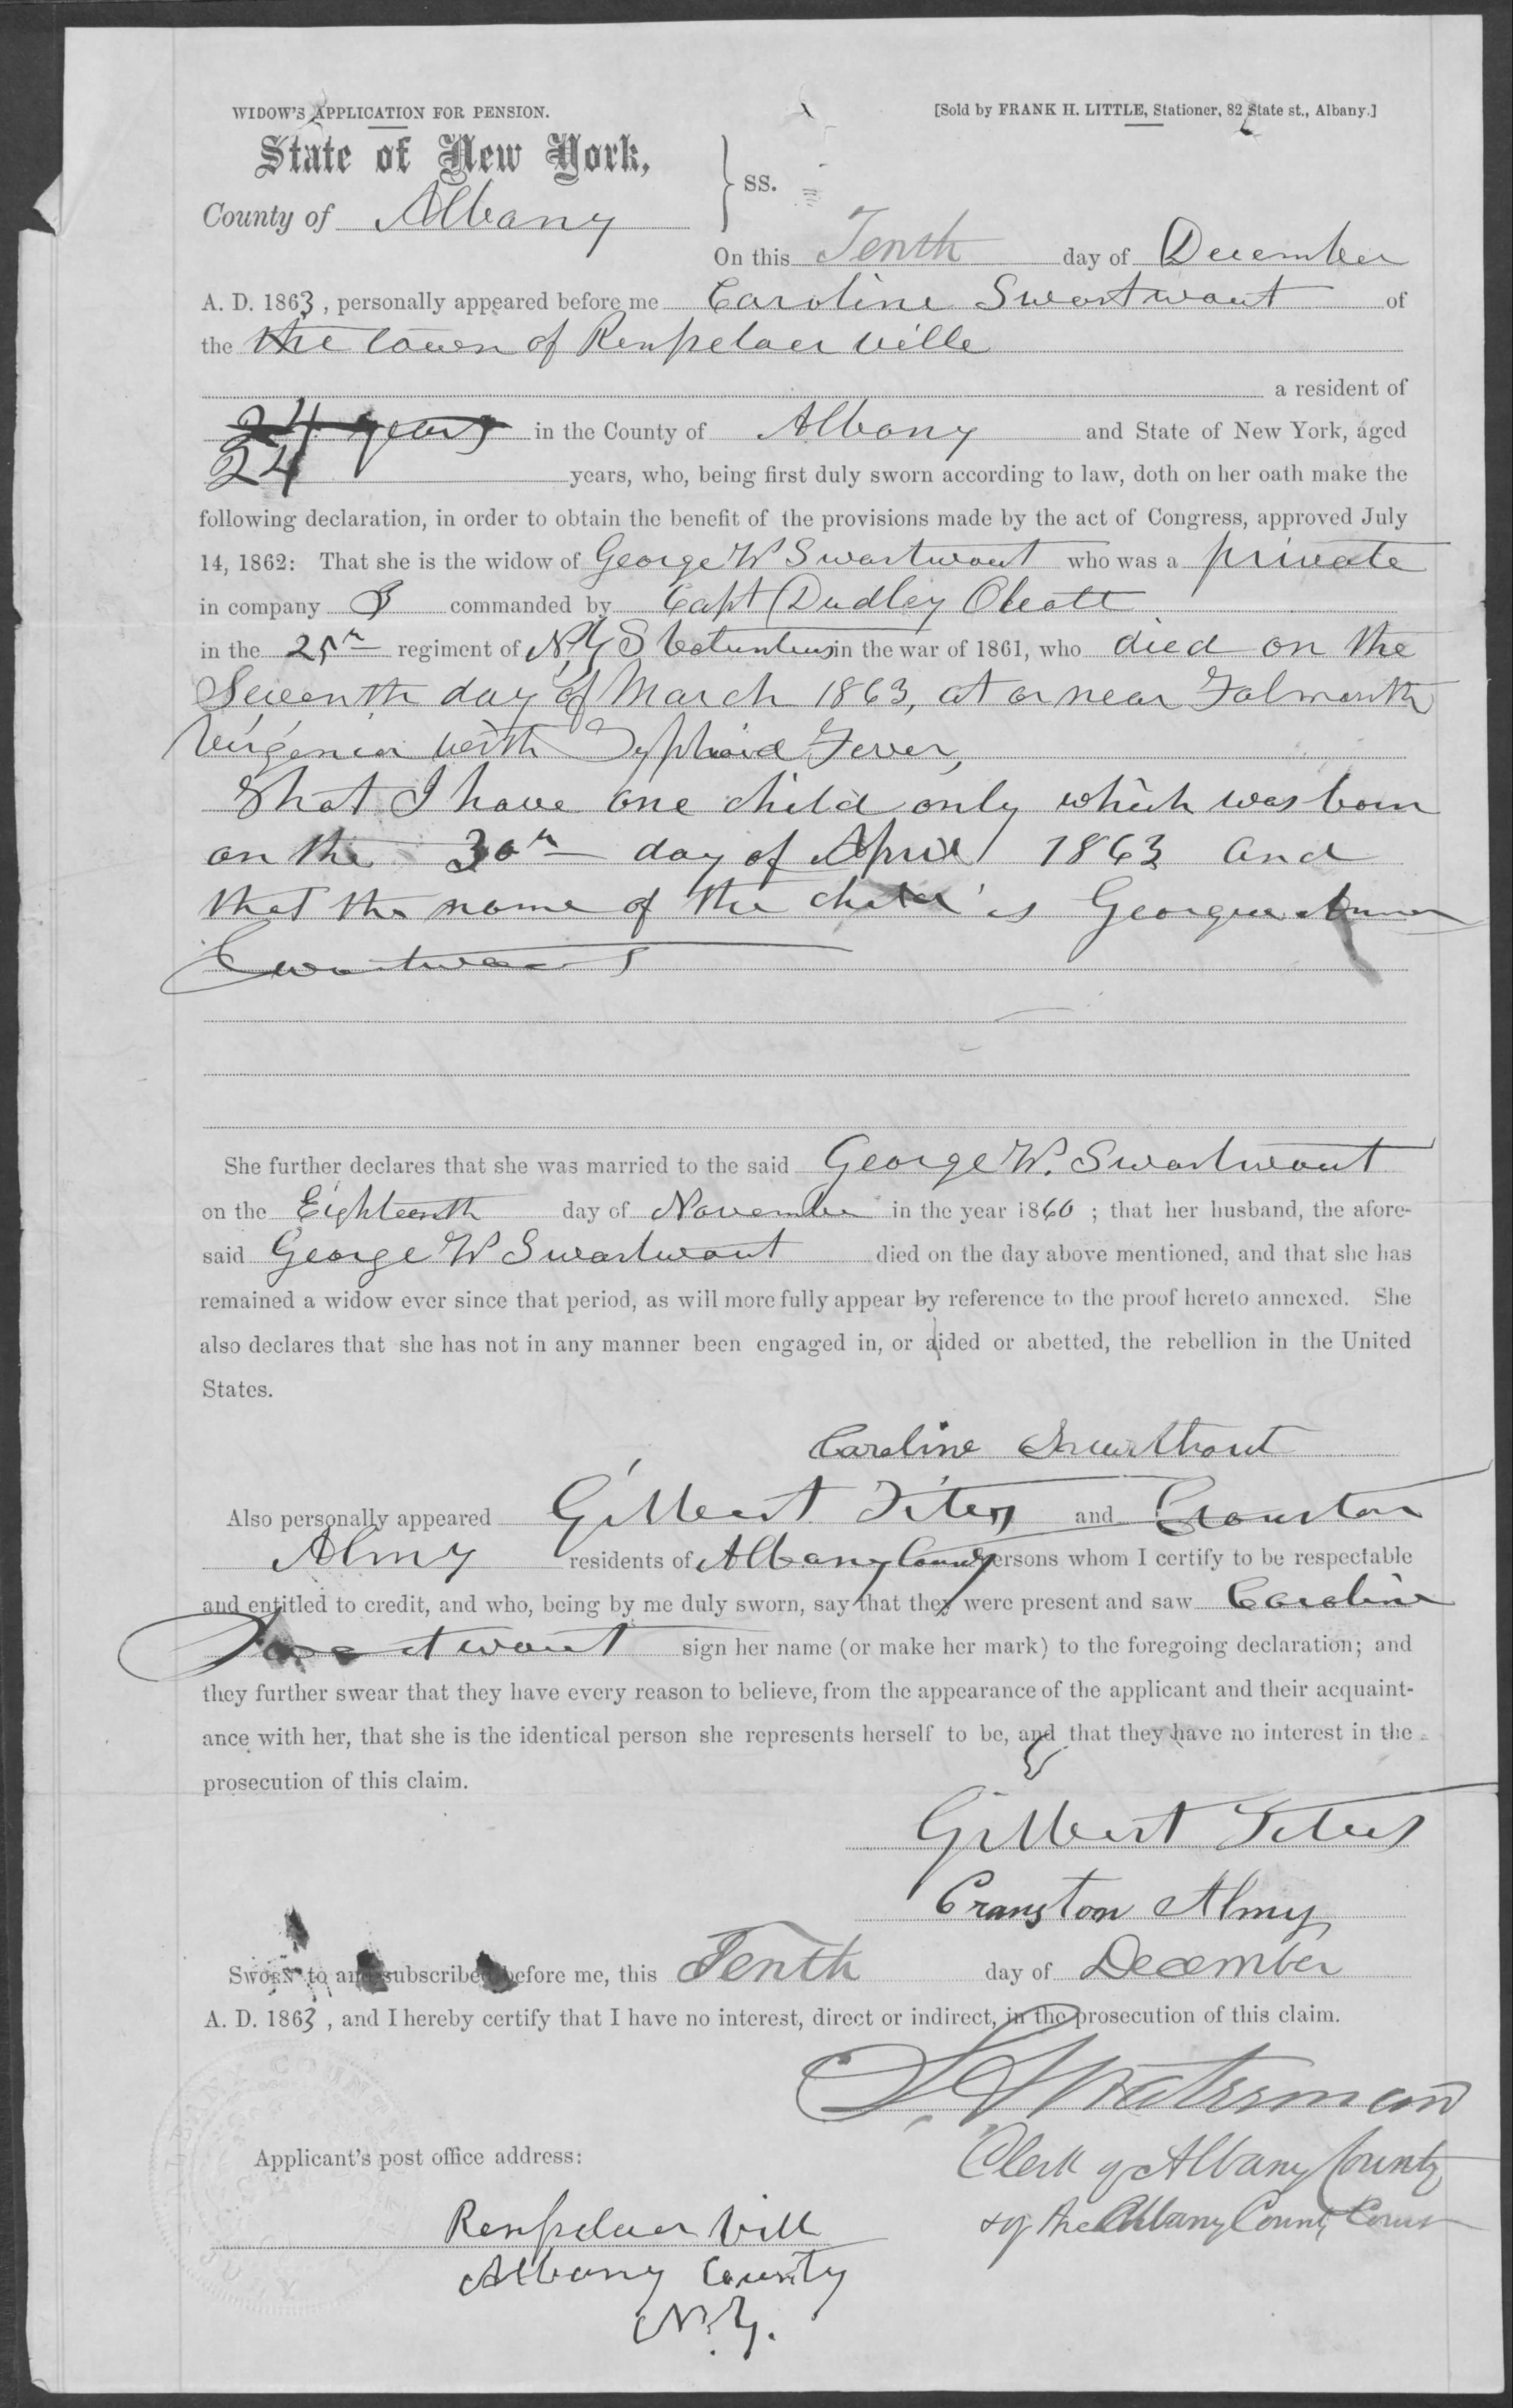 WIDOW'S APPLICATION FOR PENSION.
[Sold by FRANK H. LITTLE, Stationer, 82 State st., Albany.]
State of New York,
County of Albany
} ss.
On this Tenth day of December
A. D. 1863, personally appeared before me Caroline Swartwout of
the the town of Rensselaerville
a resident of
24 years in the County of Albany and State of New York, aged
24 years, who, being first duly sworn according to law, doth on her oath make the
following declaration, in order to obtain the benefit of the provisions made by the act of Congress, approved July
14, 1862: That she is the widow of George W Swartwout who was a private
in company commanded by Capt Dudley Olcott
in the 25th regiment of N.Y S Volunteers in the war of 1861, who died on the
Seventh day of March 1863, at or near Falmouth
Virginia with Typhoid Fever,
that I have one child only which was born
on the 30th day of April 1863 and
that the name of the child is Georgie
Swartwout
She further declares that she was married to the said George W. Swartwout
on the Eighteenth day of November in the year 1860; that her husband, the afore-
said George W Swartwout died on the day above mentioned, and that she has
remained a widow ever since that period, as will more fully appear by reference to the proof hereto annexed. She
also declares that she has not in any manner been engaged in, or aided or abetted, the rebellion in the United
States.
Caroline Swarthout
Also personally appeared Gilbert Titus and Cranston
Almy residents of Albany County persons whom I certify to be respectable
and entitled to credit, and who, being by me duly sworn, say that they were present and saw Caroline
Swartwout sign her name (or make her mark) to the foregoing declaration; and
they further swear that they have every reason to believe, from the appearance of the applicant and their acquaint-
ance with her, that she is the identical person she represents herself to be, and that they have no interest in the
prosecution of this claim.
Gilbert Titus
Cranston Almy
SWORN to and subscribed before me, this Tenth day of December
A. D. 1863, and I hereby certify that I have no interest, direct or indirect, in the prosecution of this claim.
Waterman
Clerk of Albany County
& of the Albany County Court
Applicant's post office address:
Rensselaer Vill
Albany County
N.Y.